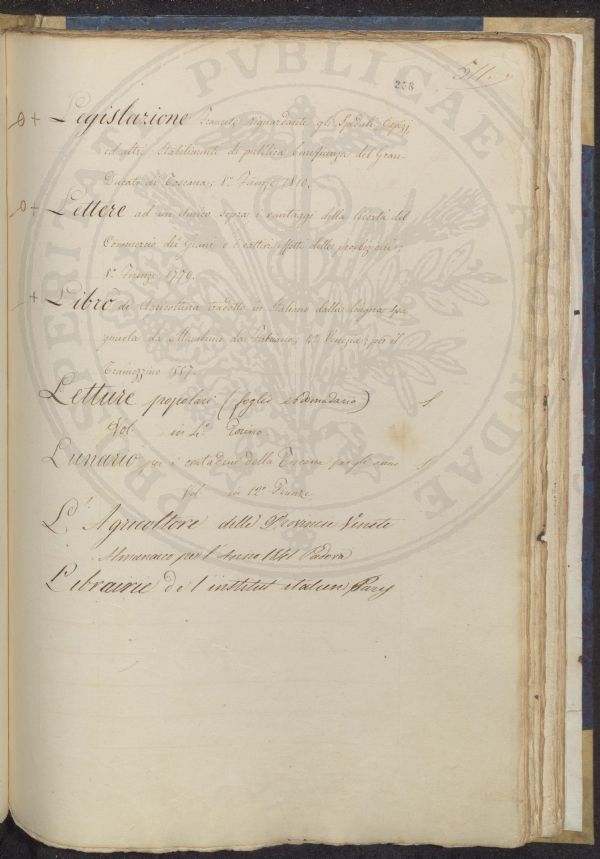 258
511.
Legislazione Francese riguardante gli Spedali, Ospizj,
ed altri Stabilimenti di pubblica beneficenza del Gran-
Ducato di Toscana; 8.° Firenze 1810.
Lettere ad un Amico sopra i vantaggi della libertà del
Commercio dei Grani e i cattivi effetti delle proibizioni;
8.° Firenze 1776.
Libro di Agricoltura tradotto in Italiano dalla lingua Spa
gnuola da Mambrino da Fabriano; 4.° Venezia; per il
Tramezzino 1557.
Letture popolari (foglio ebdomadario) S.
Vol in 4.° Torino
Lunario per i contadini della Toscana per gli anni S.
Vol in 12.° Firenze
L'Agricoltore delle Provincie Venete
Almanacco per l'Anno 1841 Padova
Librairie de l'institut italien Pary
PROSPERITATI PUBLICAE AUGENDAE